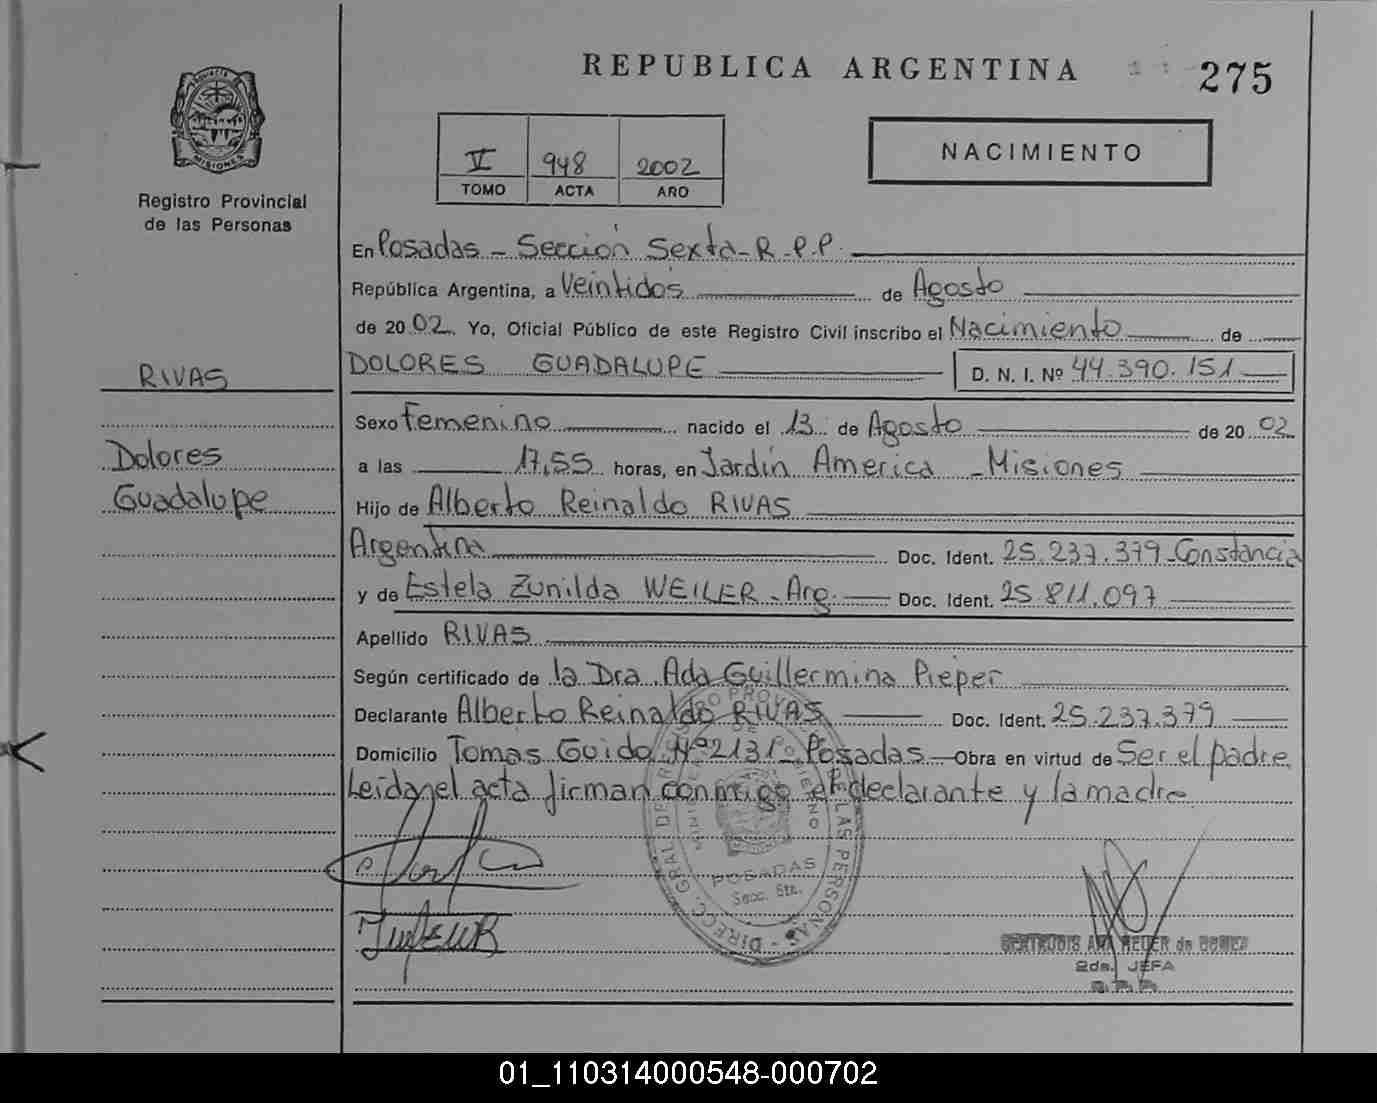 REPUBLICA ARGENTINA
275
MISIONES
Registro Provincial
de las Personas
V 948 2002
TOMO ACTA AÑO
NACIMIENTO
En Posadas - Sección Sexta - R.P.P.
República Argentina, a Veintidós de Agosto
de 2002. Yo, Oficial Público de este Registro Civil inscribo el Nacimiento de
DOLORES GUADALUPE D. N. I. Nº 44.390.151
RIVAS
Dolores
Guadalupe
Sexo Femenino nacido el 13 de Agosto de 2002
a las 17,55 horas, en Jardín America - Misiones
Hijo de Alberto Reinaldo RIVAS
Argentina Doc. Ident. 25.237.379 - Constancia
y de Estela Zunilda WEILER - Arg. Doc. Ident. 25.811.097
Apellido RIVAS
Según certificado de la Dra. Ada Guillermina Pieper
Declarante Alberto Reinaldo RIVAS Doc. Ident. 25.237.379
Domicilio Tomás Guido Nº 2131º Posadas - Obra en virtud de Ser el padre
Leída el acta firman conmigo el declarante y la madre
DIRECC. GRAL. DE REGISTRO PROVINCIAL DE LAS PERSONAS
POSADAS
Secc. 6ta.
GERTRUDIS ANA REDER de GOMEZ
2da. JEFA
R.P.P.
01_110314000548-000702